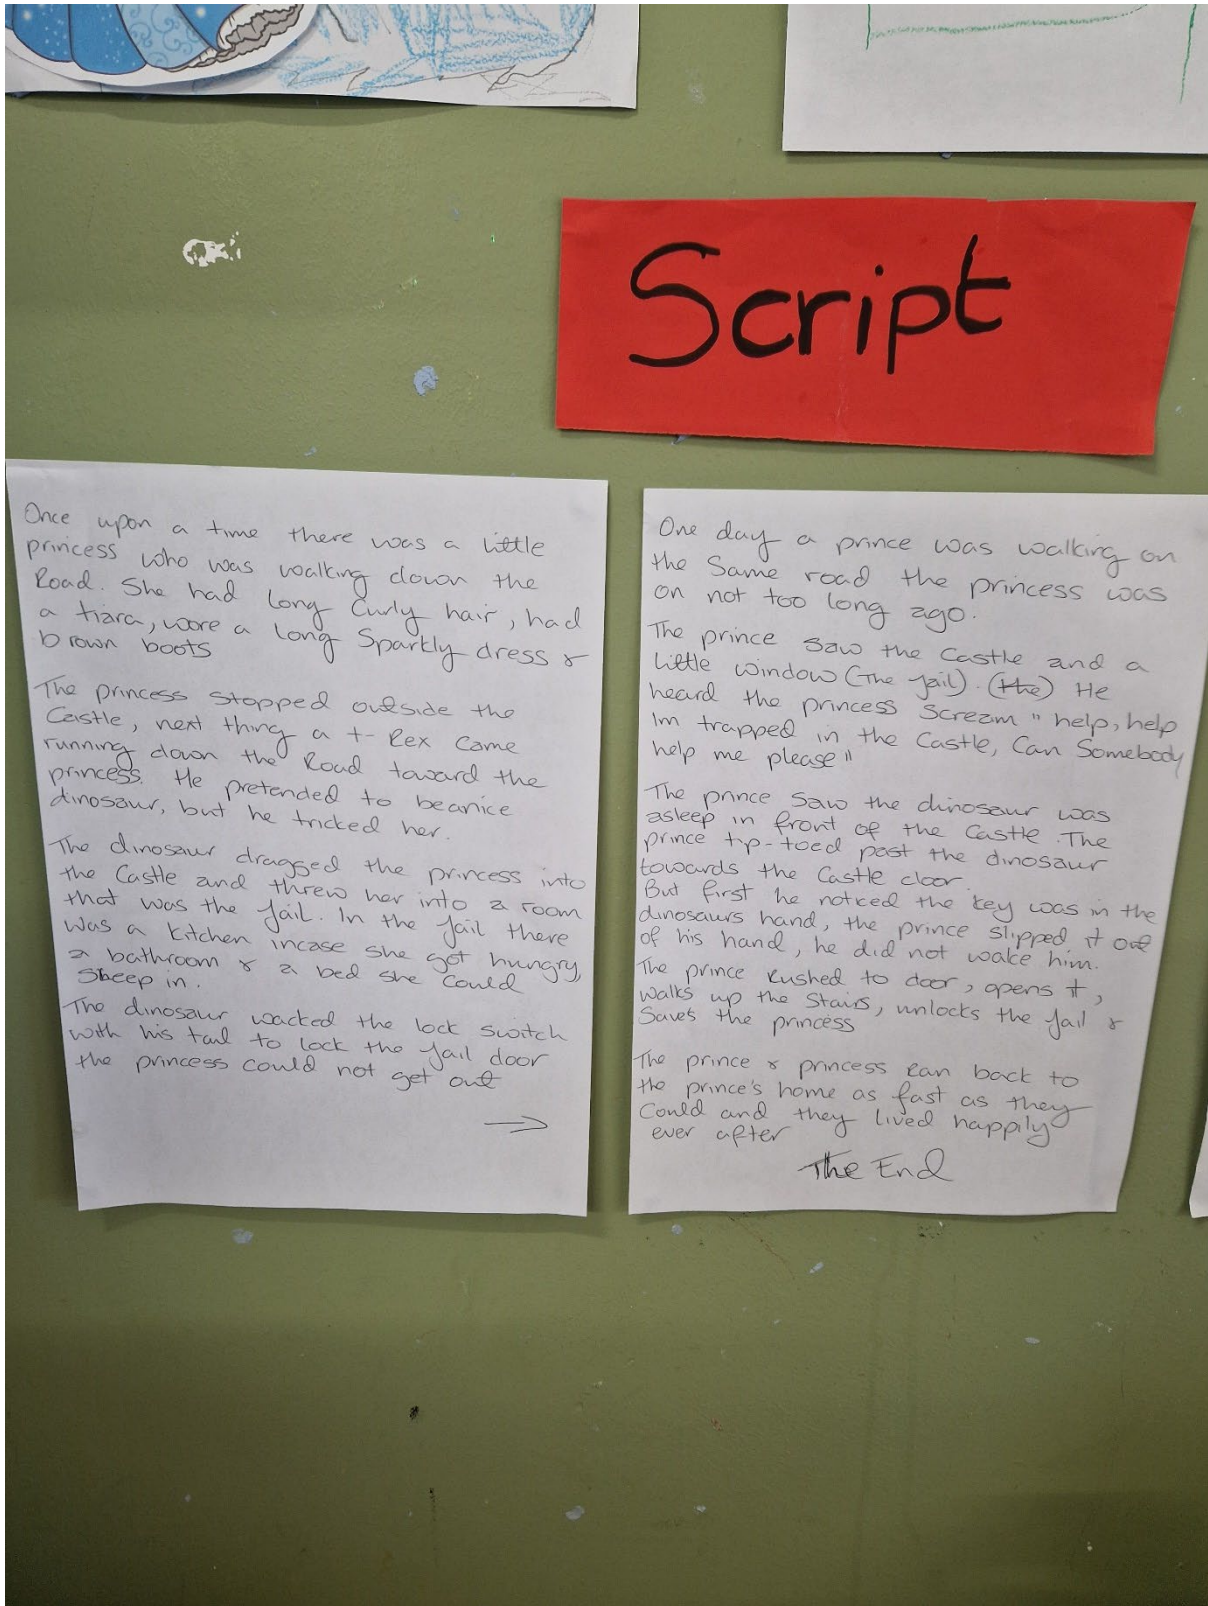 Script
Once upon a time there was a little
princess who was walking down the
Road. She had long Curly hair, had
a tiara, wore a long Sparkly dress &
brown boots
The princess stopped outside the
Castle, next thing a t-Rex came
running down the Road toward the
princess. He pretended to beanice
dinosaur, but he tricked her.
The dinosaur dragged the princess into
the Castle and threw her into a room
that was the Jail. In the Jail there
was a kitchen incase she got hungry,
a bathroom & a bed she could
Sleep in.
The dinosaur wacked the lock switch
with his tail to lock the Jail door
the princess could not get out
→
One day a prince was walking on
the Same road the princess was
on not too long ago.
The prince Saw the Castle and a
little window (The Jail). (the) He
heard the princess Scream " help, help
Im trapped in the Castle, Can Somebody
help me please "
The prince Saw the dinosaur was
asleep in front of the Castle. The
prince tip-toed past the dinosaur
towards the Castle door.
But first he noticed the key was in the
dinosaurs hand, the prince slipped it out
of his hand, he did not wake him.
The prince Rushed to door, opens it,
walks up the Stairs, unlocks the Jail &
Saves the princess
The prince & princess Ran back to
the prince's home as fast as they
Could and they lived happily
ever after
The End